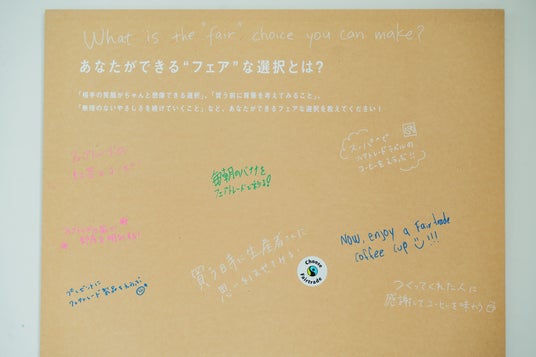 What is the "fair" choice you can make?
あなたができる“フェア”な選択とは?
「相手の笑顔がちゃんと想像できる選択」、「買う前に背景を考えてみること」、
「無理のないやさしさを続けていくこと」など、あなたができるフェアな選択を教えてください！
スーパーで
フェアトレードラベルの
コーヒーをえらぶ!!
毎朝のバナナを
フェアトレードに変える!
Now, enjoy a Fairtrade
coffee cup !!!
買う時に生産者さんに
思いをはせてみる
Choose
Fairtrade
プレゼントに
フェアトレード製品をえらぶ
つくってくれた人に
感謝してコーヒーを味わう